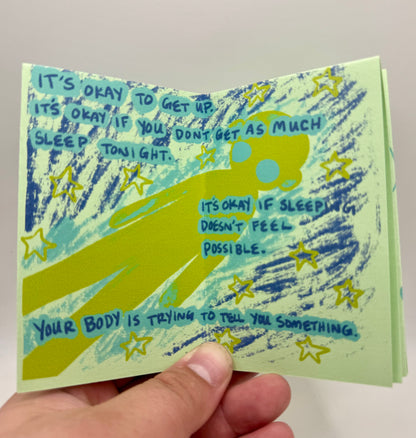 IT'S OKAY TO GET UP.
IT'S OKAY IF YOU DON'T GET AS MUCH
SLEEP TONIGHT.
IT'S OKAY IF SLEEPING
DOESN'T FEEL
POSSIBLE.
YOUR BODY IS TRYING TO TELL YOU SOMETHING.